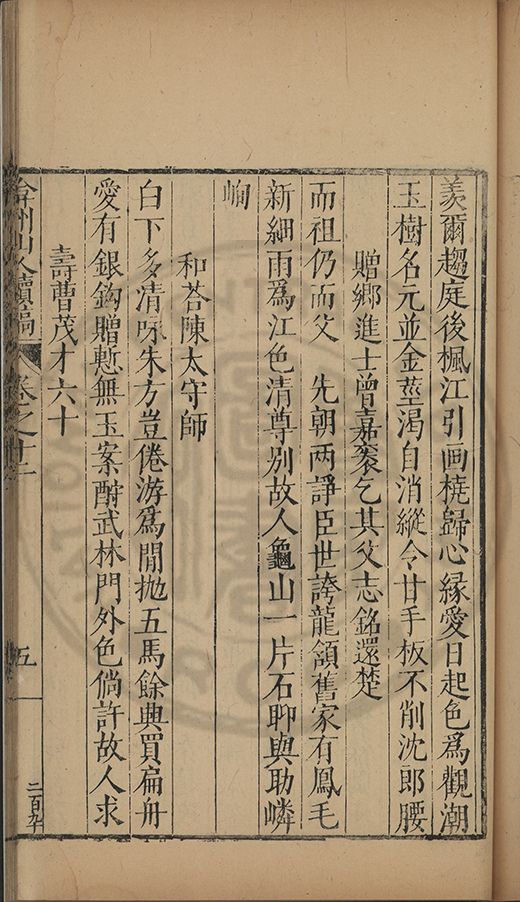 羙爾趨庭後楓江引画橈歸心縁愛日起色爲觀潮
玉樹名元並金莖渴自消縱令甘手板不削沈郎腰
贈鄉進士曾嘉褎乞其父志銘還楚
而祖仍而父　先朝两諍臣世誇龍頷舊家有鳳毛
新細雨爲江色清尊别故人龜山一片石聊與助嶙
峋
和荅陳太守師
白下多清呩朱方豈倦游爲閒抛五馬餘典買扁舟
愛有銀鈎贈慙無玉案酧武林門外色倘許故人求
壽曹茂才六十
弇州山人續稿
卷之十二
五
二百九十